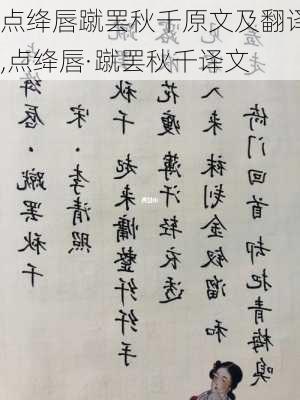 点绛唇蹴罢秋千原文及翻译
,点绛唇·蹴罢秋千译文
绛唇·蹴罢秋千
宋·李清照
秋千 起来慵整纤纤手
花瘦 薄汗轻衣透
入来 袜刬金钗溜 和
羞走 倚门回首 却把青梅嗅